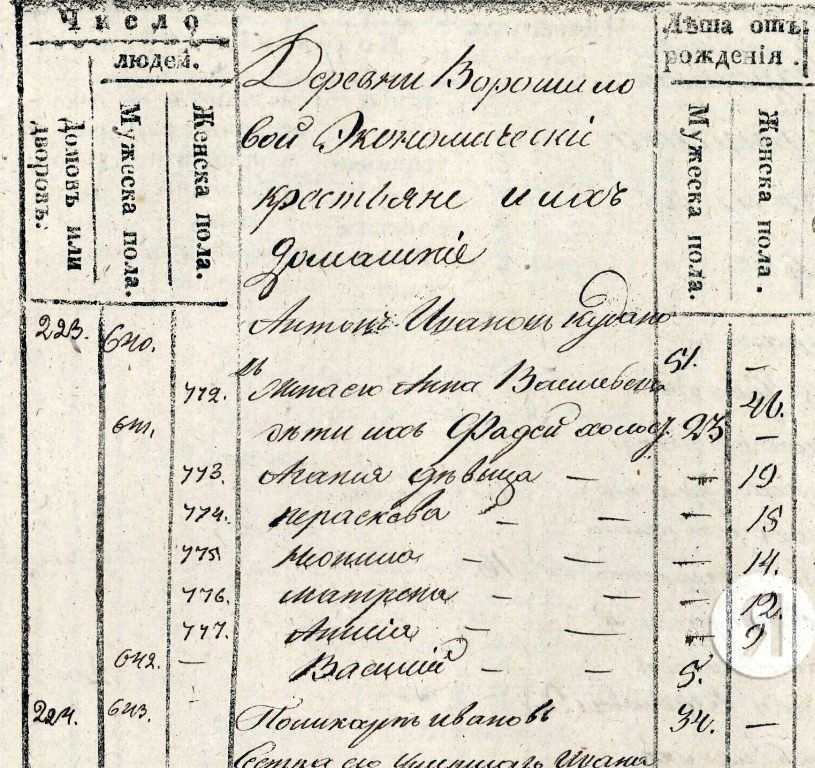 Число
людей.
Домовъ или дворовъ.
Мужеска пола.
Женска пола.
Лѣта отъ рожденія.
Мужеска пола.
Женска пола.
Деревни Ворошило
вой Экономическіе
крестьяне и ихъ
домашніе
223. 640. Антонъ Ивановъ 51. —
772. жена его Анна Васильевна 46.
641. дѣти ихъ Фадей холост. 23 —
773. Агапия дѣвица — — 19
774. Параскева — — — 15
775. Неонила — — — 14.
776. Матрена — — — 12.
777. Анисія — — — 9
642. — Василий — — 5.
224. 643. Поликарпъ Ивановъ 34. —
его Ивана